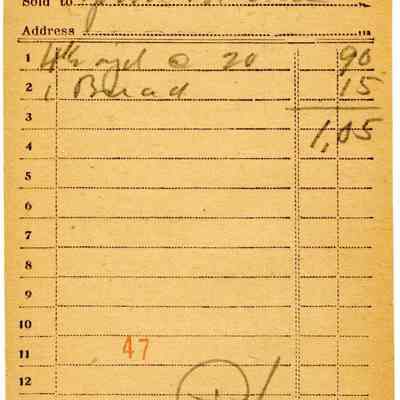 Sold to
Address
1 @ 20 90
2 1 Bread 15
3
4 1,05
5
6
7
8
9
10
11 47
12